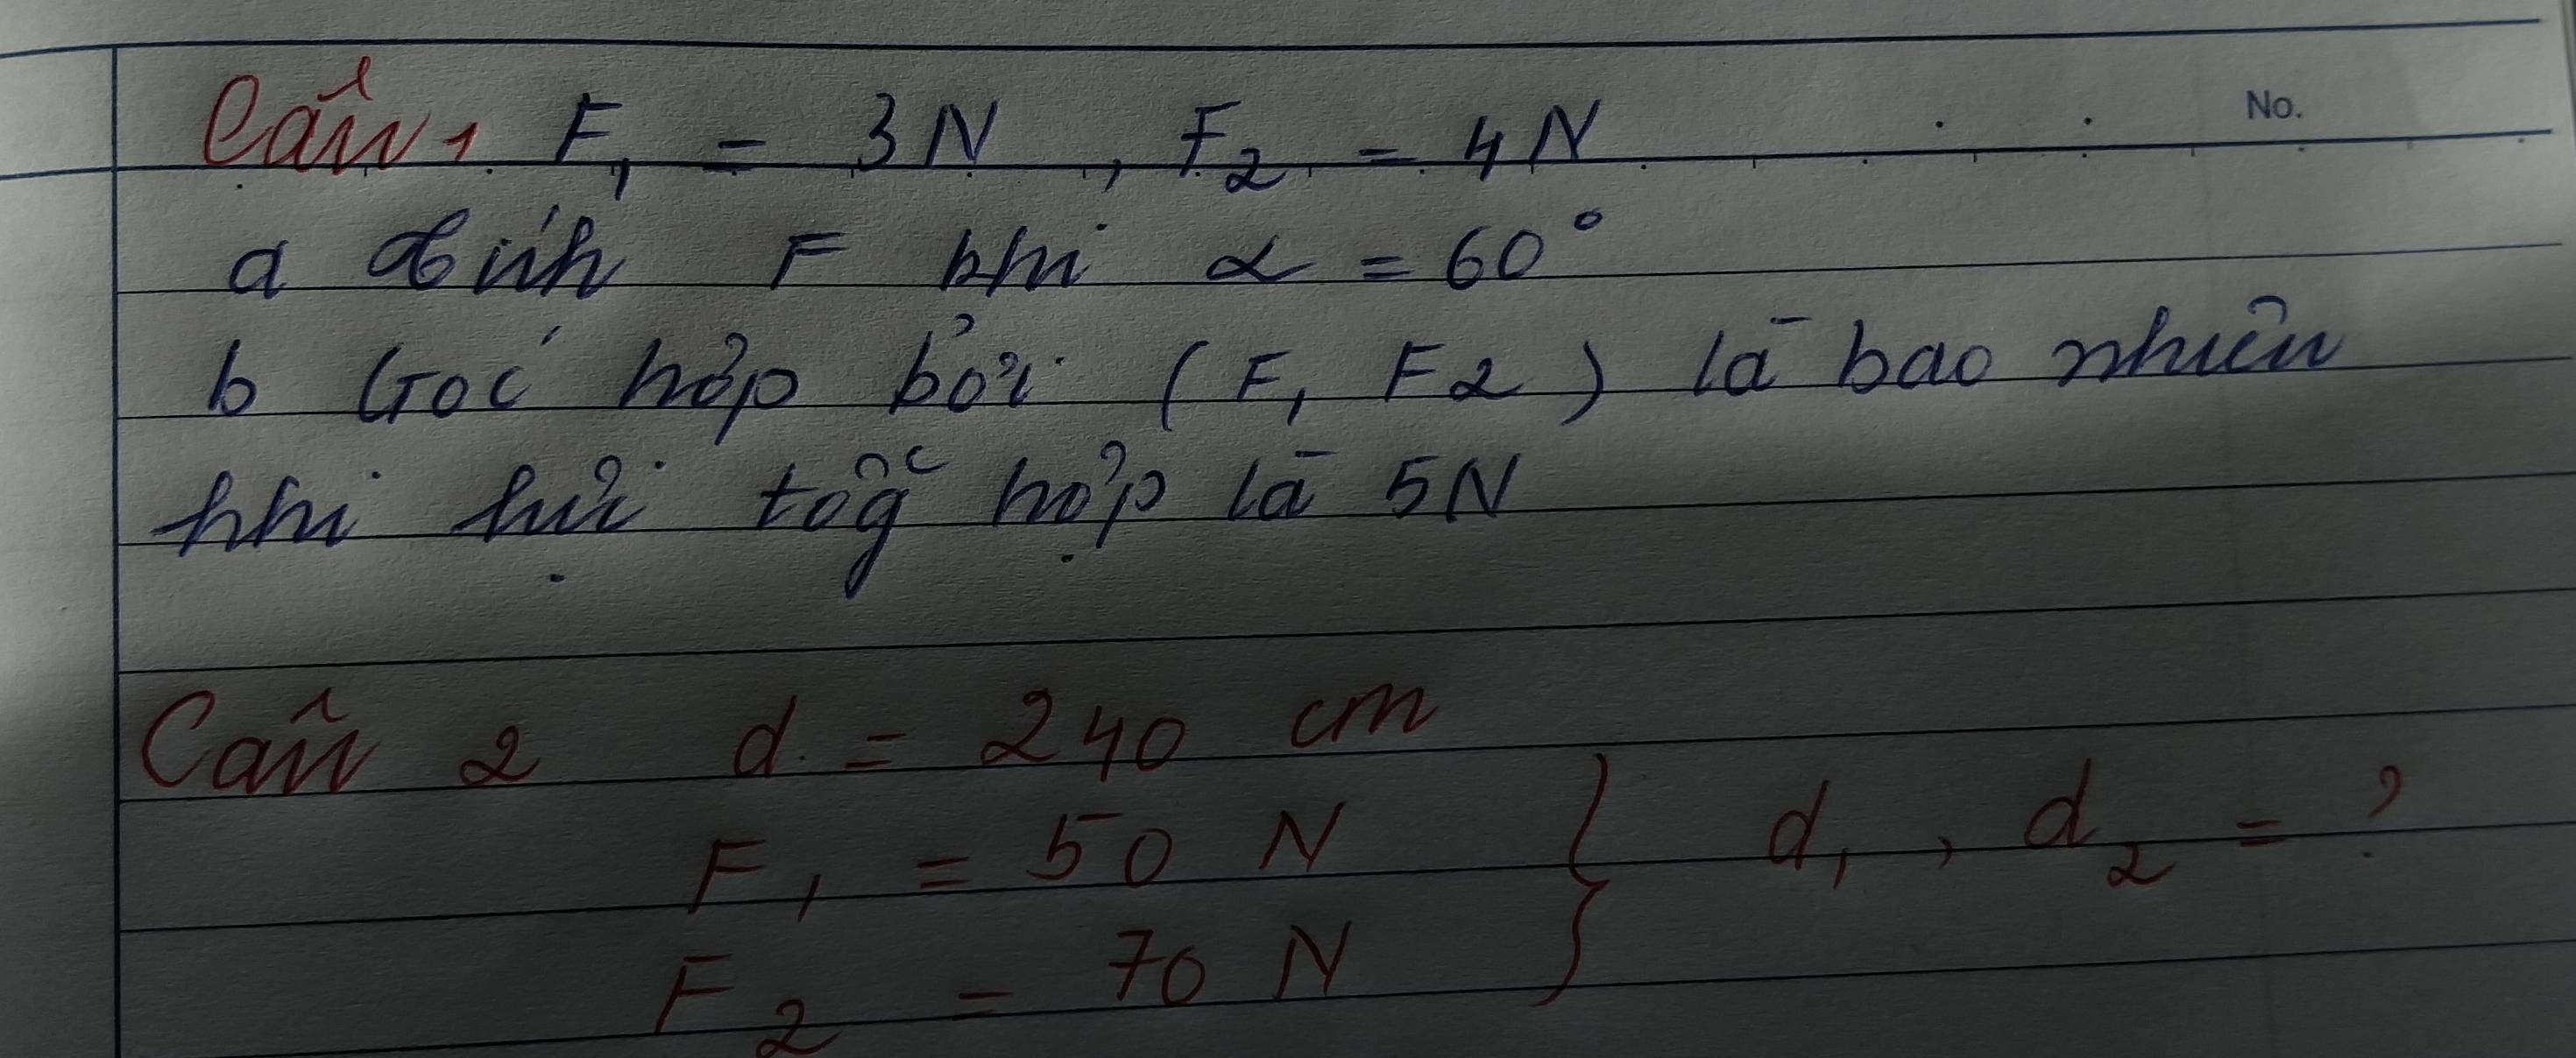 Câu 1 F1 = 3N , F2 = 4N
No.
a Tính F khi α = 60°
b Góc hợp bởi (F1 F2) là bao nhiêu
khi lực tổg hợp là 5N
Câu 2 d = 240 cm
F1 = 50 N } d1 , d2 = ?
F2 = 70 N